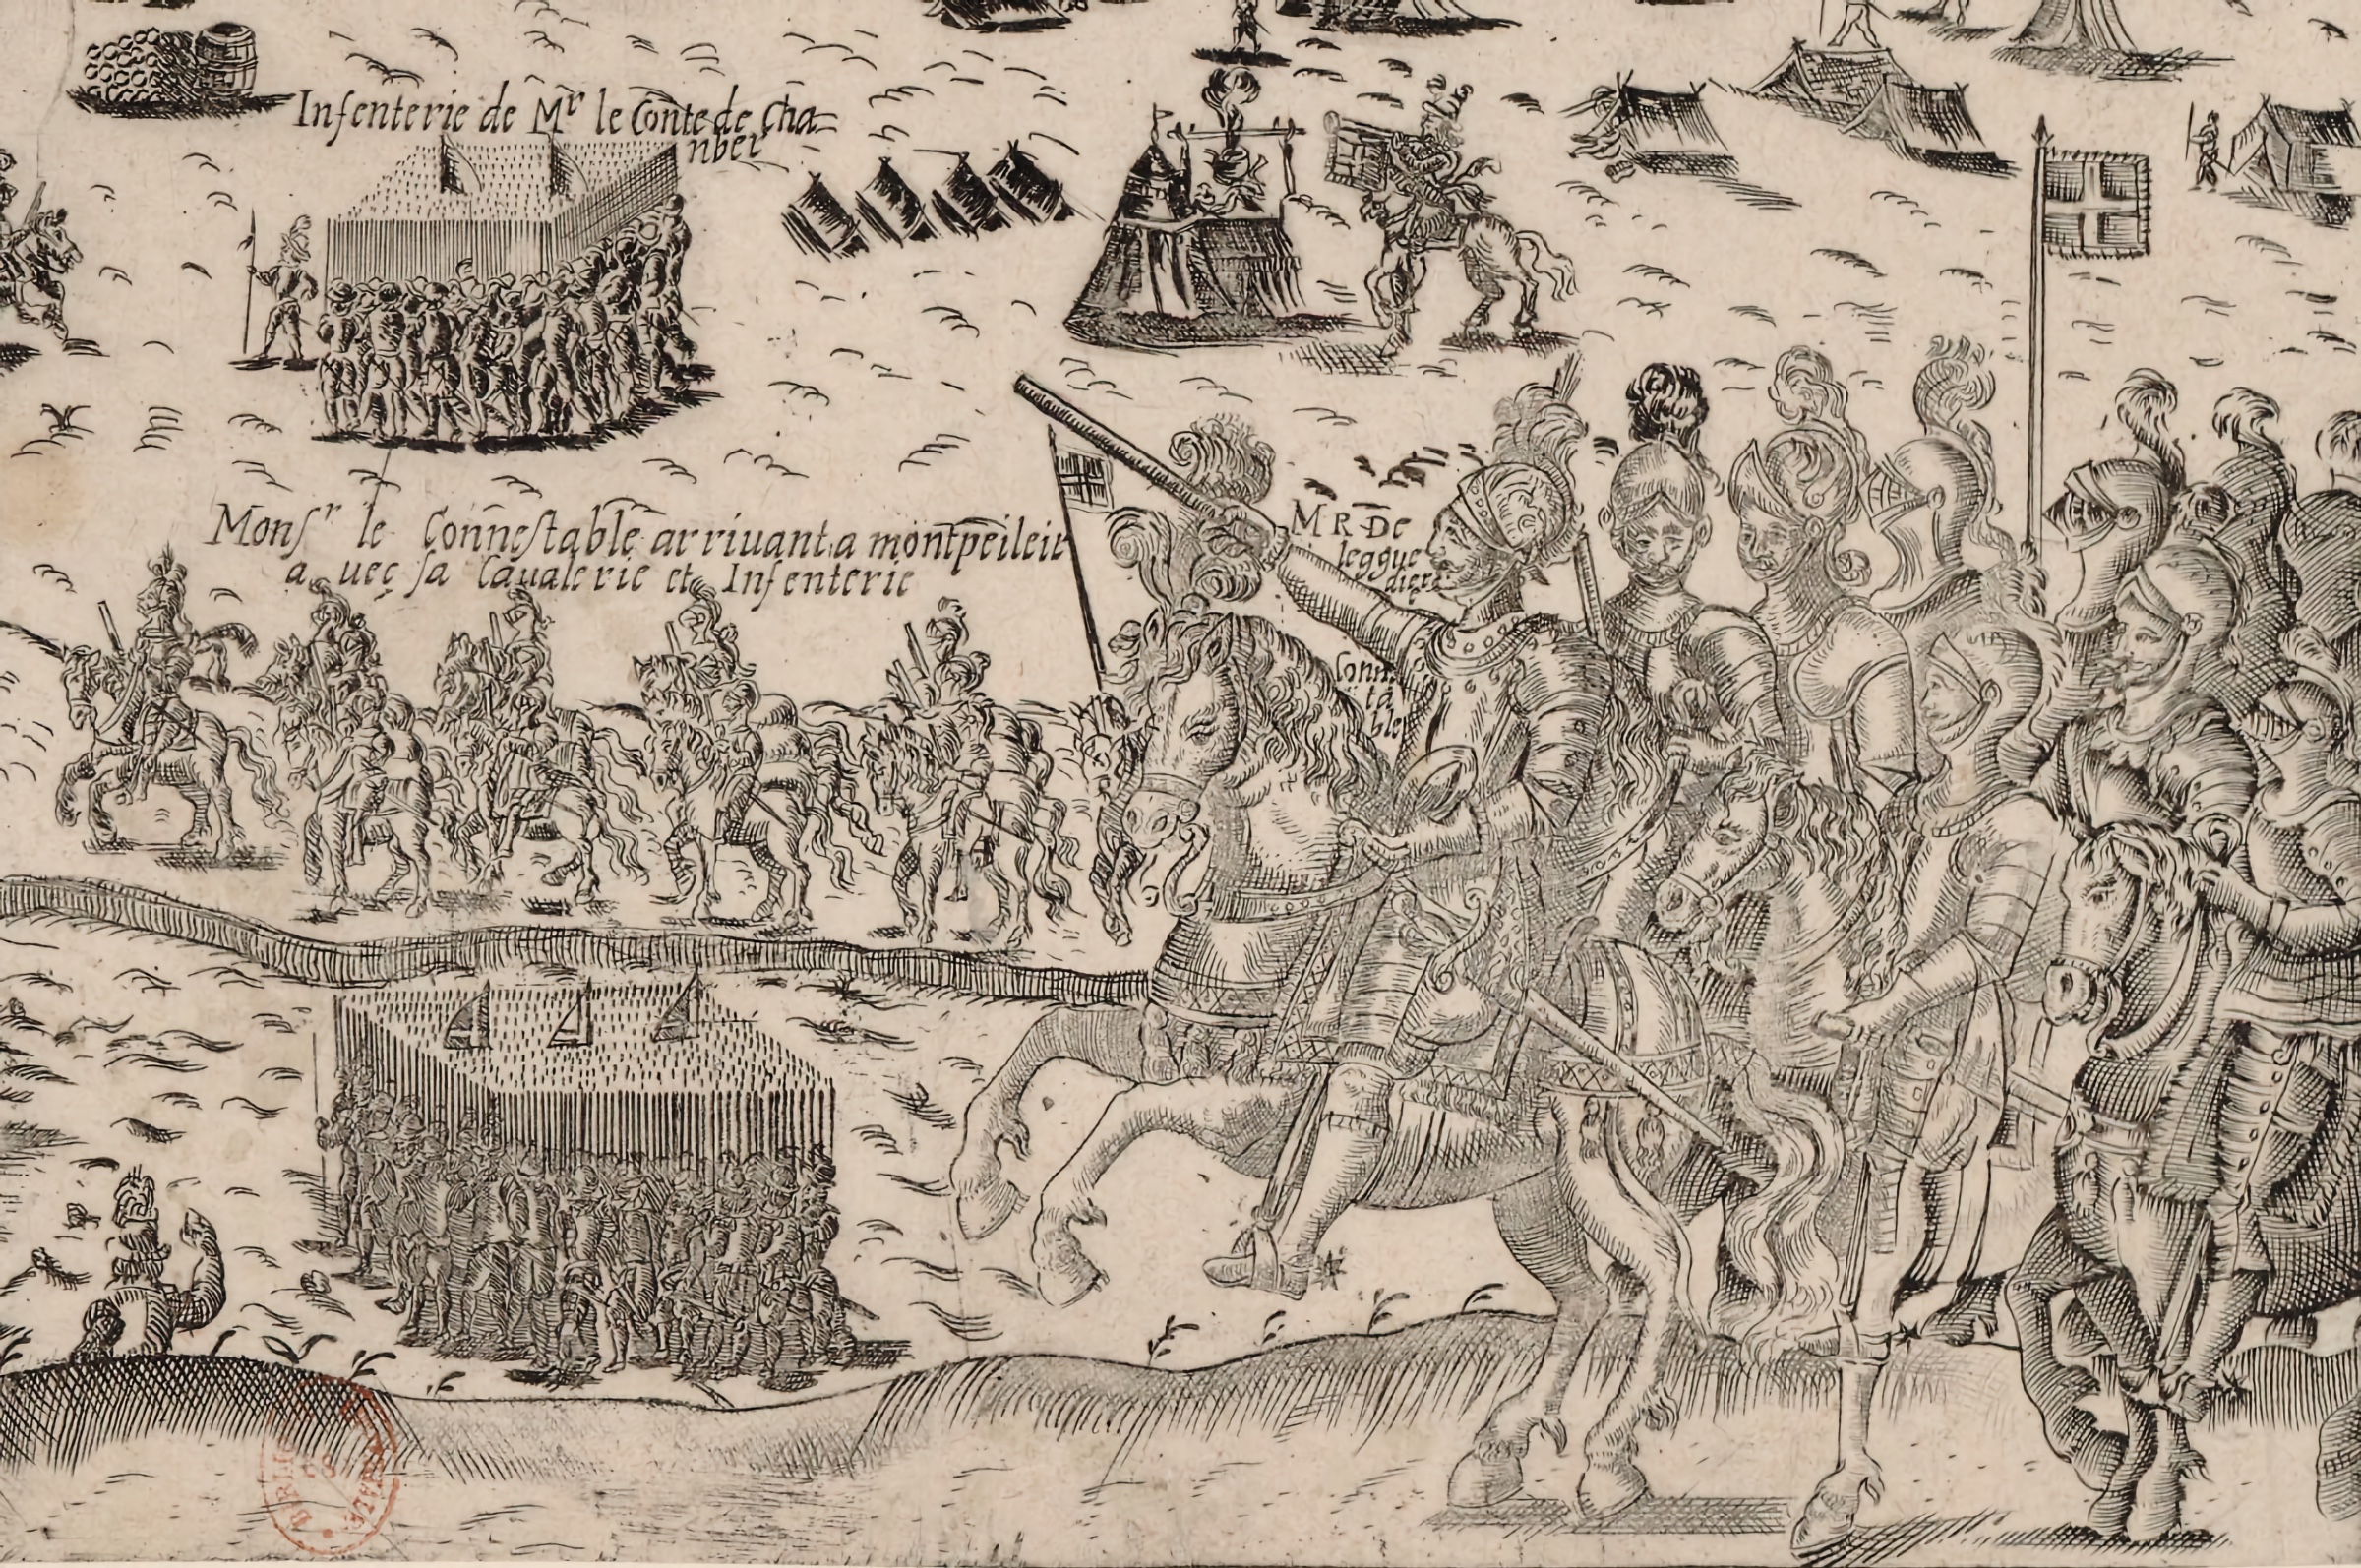 Infenterie de Mʳ le Conte de Cha=
nber
Monſʳ le Conneſtable arriuant a montpeileir
auec ſa Caualerie et Infenterie
MR DE
leggue
dier
Conn
ta
ble